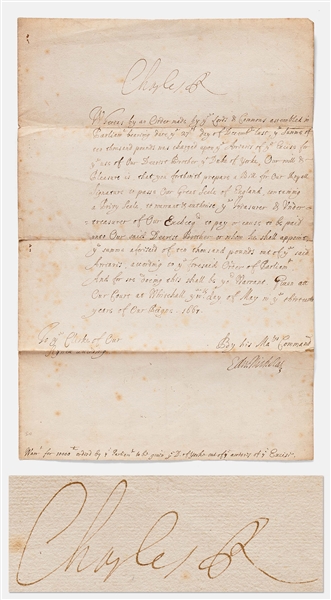 Charles R
Whereas by an Order made by yͤ Lords & Commons assembled in
Parliamᵗ bearing date yͤ day of Decembʳ last, yͤ summe of
thousand pounds was charged upon yͤ Arreares of yͤ Excise for
yͤ use of Our Dearest Brother yͤ Duke of Yorke, Our will &
Pleasure is that you forthwith prepare a Bill for Our Royall
Signature to passe Our Greate Seale of England, containing
a Privy Seale, to our Treasurer & Under-
treasurer of Our Excheqʳ to pay or cause to be paid
unto Our said Dearest Brother or whom he shall appoint
yͤ summe aforesaid of thousand pounds out of yͤ said
Arreares, according to yͤ foresaid Order of Parliamᵗ
And for soe doing this shall be yoʳ Warrant Given att
Our Court at Whitehall yͤ day of May in yͤ
yeare of Our Reigne. 1661
To yͤ Clerke of Our
Signett attending
By his Maᵗˢ Command
Edw. Nicholas
Warrᵗ for by yͤ Parliamᵗ to be paid yͤ D. of Yorke out of yͤ arreares of yͤ Excise.
Charles R